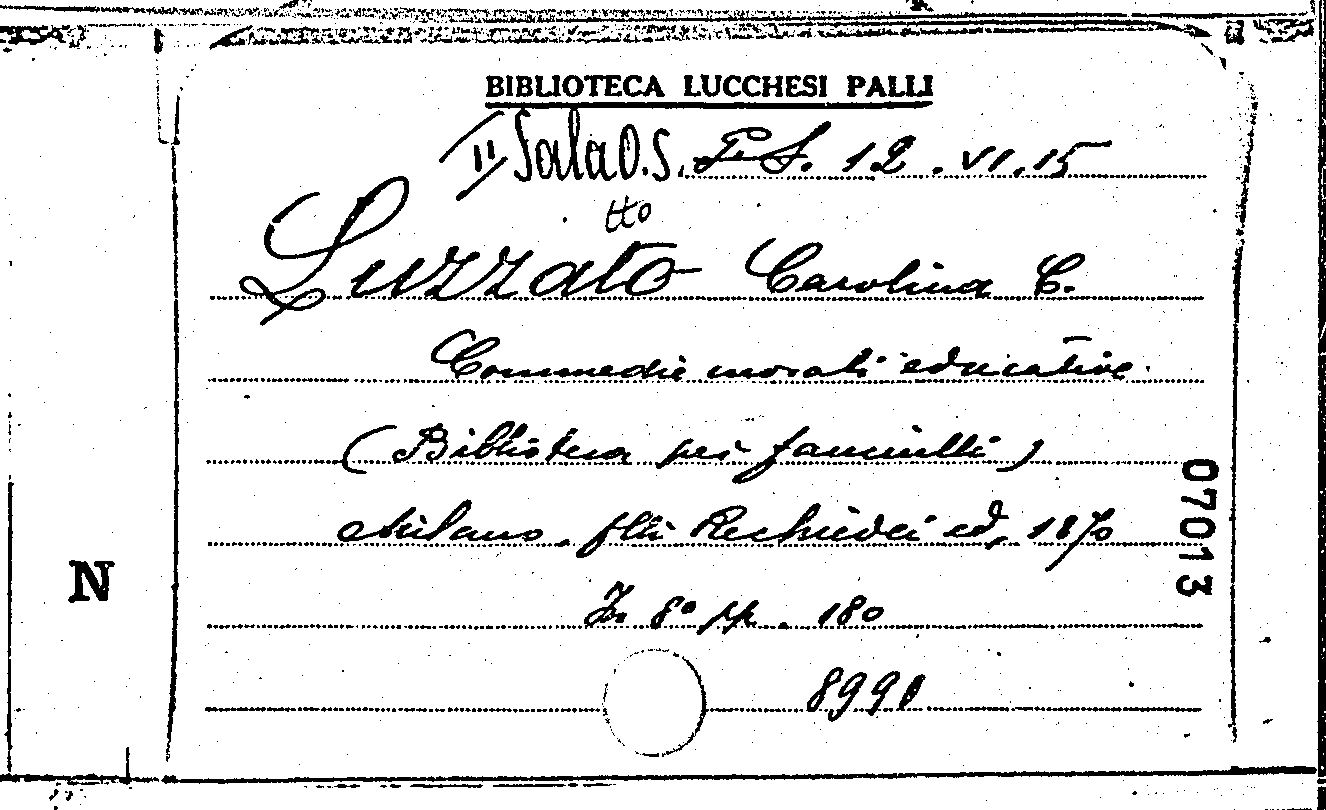 BIBLIOTECA LUCCHESI PALLI
II Sala O.S. F.S. 12. VI. 15
tto
Luzzato Carolina C.
Commedie morali educative.
(Biblioteca pei fanciulli)
Milano. flli Rechiedei ed, 1870
In 8° pp. 180
8990
07013
N